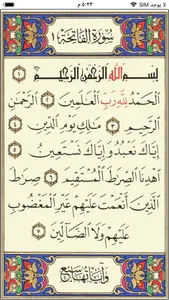 لا يوجد SIM ٥:٢٣ م
سورة الفاتحة ١
بسم الله الرحمن الرحيم ١
الحمد لله رب العلمين ٢ الرحمن
الرحيم ٣ ملك يوم الدين ٤
إياك نعبد وإياك نستعين ٥
اهدنا الصرط المستقيم ٦ صرط
الذين أنعمت عليهم غير المغضوب
عليهم ولا الضالين ٧
وآياتها سبع